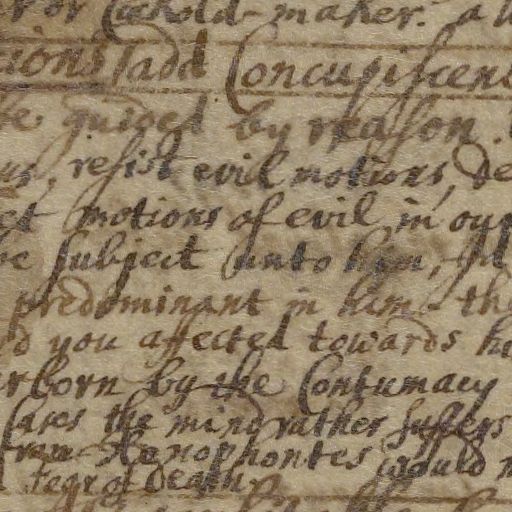 Cuckold-maker. a
ions add Concupiscen
be guided by reason.
resist evil motions, de
et motions of evil in our
be subject unto him,
predominant in him th
d you affected towards hi
erborn by the Contumacy
Cares the mind rather suffers
Xenophontes would
fear of Death.